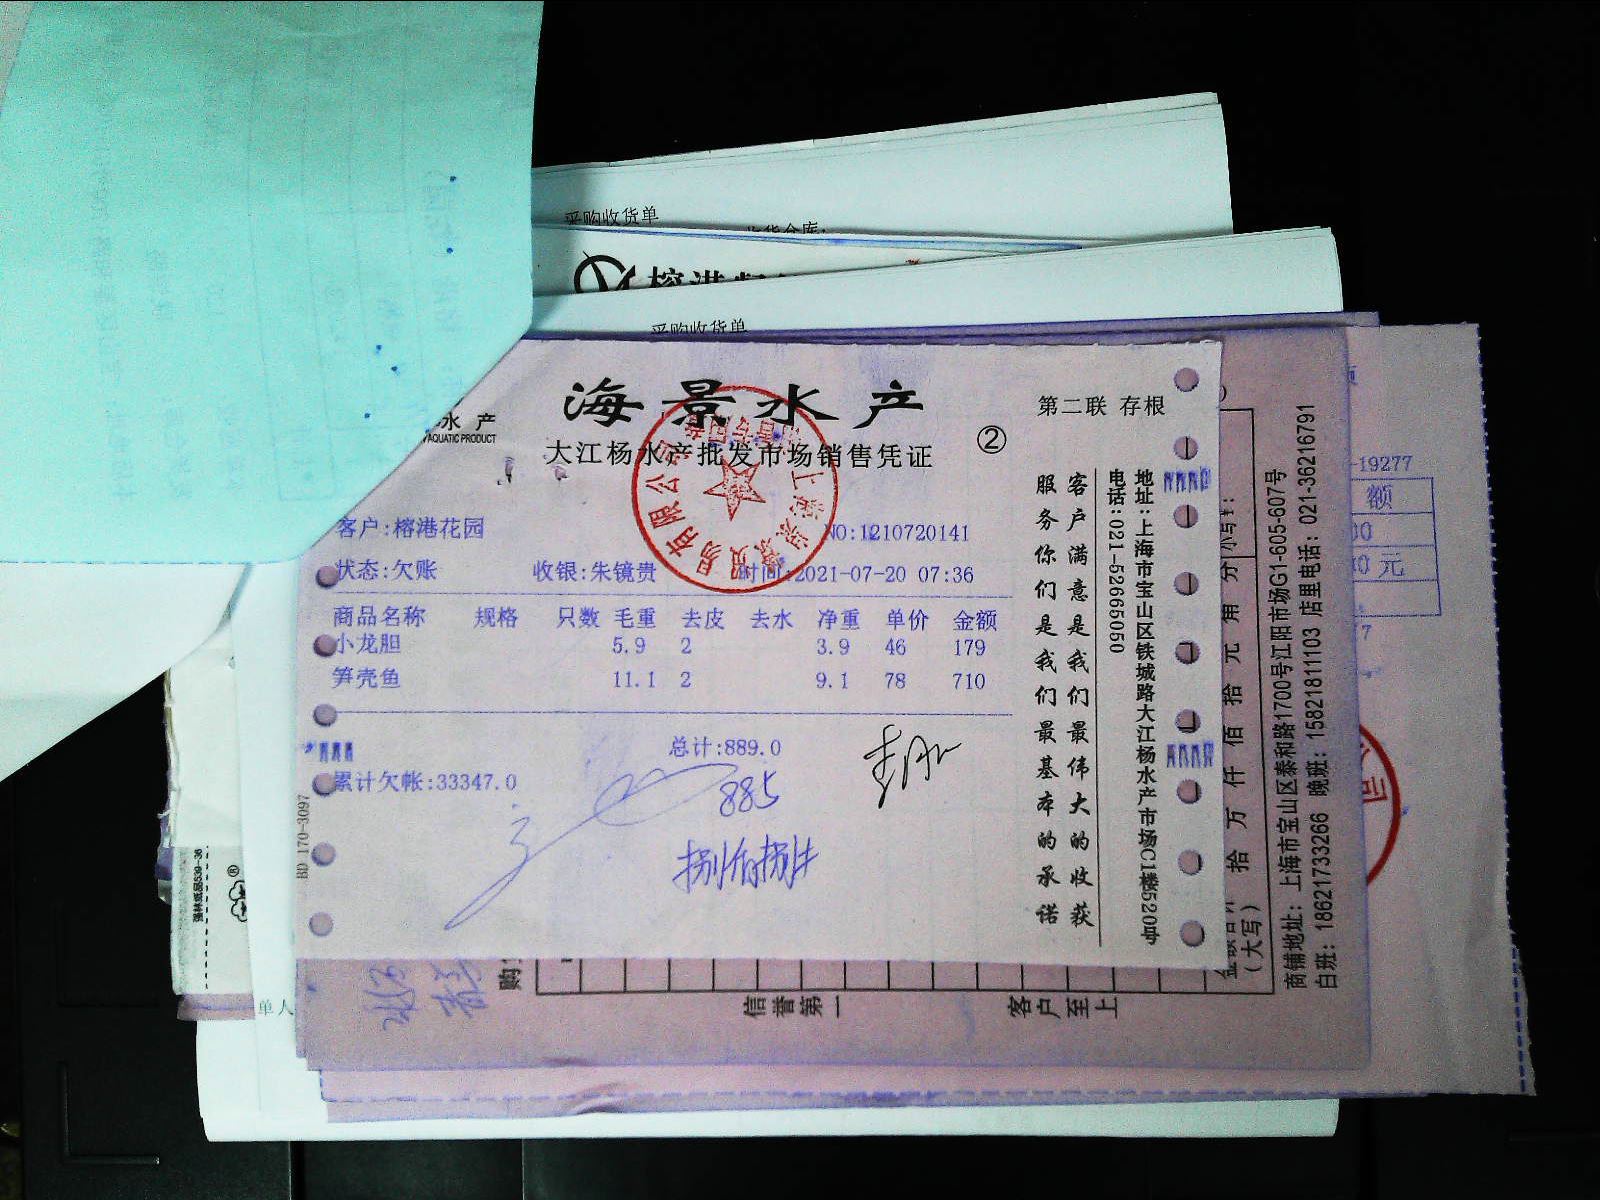 采购收货单
采购收货单
海景水产
水产
AQUATIC PRODUCT
大江杨水产批发市场销售凭证
②
第二联 存根
客户:榕港花园
NO:1210720141
状态:欠账
收银:朱镜贵
时间:2021-07-20 07:36
商品名称 规格 只数 毛重 去皮 去水 净重 单价 金额
小龙胆 5.9 2 3.9 46 179
笋壳鱼 11.1 2 9.1 78 710
总计:889.0
累计欠帐:33347.0
885
BD 170-3097
客户满意是我们最伟大的收获
服务你们是我们最基本的承诺
地址:上海市宝山区铁城路大江杨水产市场C1楼520号
电话:021-52665050
分 角 元 拾 佰 仟 万 拾
(大写)
商铺地址: 上海市宝山区泰和路1700号江阳市场G1-605-607号
白班: 18621733266 晚班: 15821811103 店里电话: 021-36216791
信誉第一
客户至上
-19277
额
元
单人